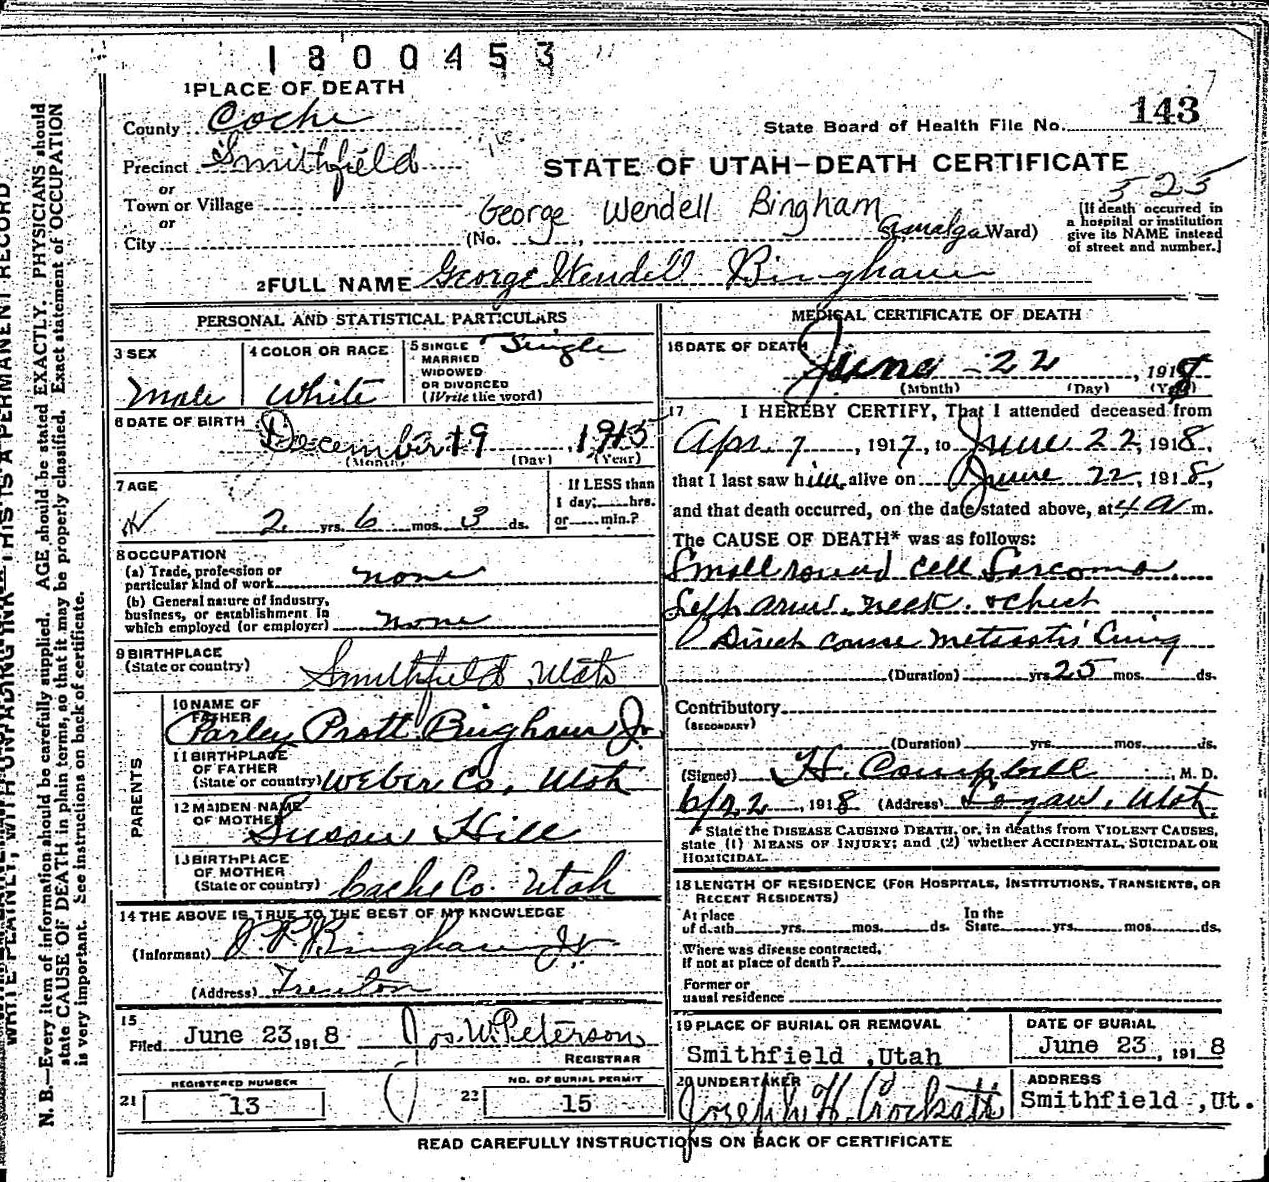 1800453
1 PLACE OF DEATH
County Cache
State Board of Health File No. 143
Precinct Smithfield
STATE OF UTAH—DEATH CERTIFICATE
or
Town or Village
525
or
George Wendell Bingham
City
(No. , Amalga Ward)
[If death occurred in
a hospital or institution
give its NAME instead
of street and number.]
2 FULL NAME George Wendell Bingham
PERSONAL AND STATISTICAL PARTICULARS
3 SEX
Male
4 COLOR OR RACE
White
5 SINGLE
MARRIED
WIDOWED
OR DIVORCED
(Write the word)
Single
6 DATE OF BIRTH
December 19 1915
(Month) (Day) (Year)
7 AGE
2 yrs. 6 mos. 3 ds.
If LESS than
1 day, hrs.
or min.?
8 OCCUPATION
(a) Trade, profession or
particular kind of work none
(b) General nature of industry,
business, or establishment in
which employed (or employer) none
9 BIRTHPLACE
(State or country) Smithfield, Utah
PARENTS
10 NAME OF
FATHER
Parley Pratt Bingham Jr.
11 BIRTHPLACE
OF FATHER
(State or country) Weber Co, Utah
12 MAIDEN NAME
OF MOTHER
Hill
13 BIRTHPLACE
OF MOTHER
(State or country) Cache Co. Utah
14 THE ABOVE IS TRUE TO THE BEST OF MY KNOWLEDGE
(Informant) P. Bingham Jr
(Address) Trenton
15
Filed June 23 1918 Jos. W. Peterson
REGISTRAR
21 REGISTERED NUMBER
13
22 NO. OF BURIAL PERMIT
15
MEDICAL CERTIFICATE OF DEATH
16 DATE OF DEATH
June 22, 1918
(Month) (Day) (Year)
17 I HEREBY CERTIFY, That I attended deceased from
Apr. 7, 1917, to June 22, 1918,
that I last saw him alive on June 22, 1918,
and that death occurred, on the date stated above, at 4 a m.
The CAUSE OF DEATH* was as follows:
Small round cell Sarcoma
Left arm. neck. & chest
Direct cause
(Duration) yrs. 25 mos. ds.
Contributory
(SECONDARY)
(Duration) yrs. mos. ds.
(Signed) H. Campbell, M. D.
6/22, 1918 (Address) Logan, Utah.
* State the DISEASE CAUSING DEATH, or, in deaths from VIOLENT CAUSES,
state (1) MEANS OF INJURY; and (2) whether ACCIDENTAL, SUICIDAL OR
HOMICIDAL.
18 LENGTH OF RESIDENCE (FOR HOSPITALS, INSTITUTIONS, TRANSIENTS, OR
RECENT RESIDENTS)
At place
of death yrs. mos. ds.
In the
State yrs. mos. ds.
Where was disease contracted,
If not at place of death?
Former or
usual residence
19 PLACE OF BURIAL OR REMOVAL
Smithfield ,Utah
DATE OF BURIAL
June 23, 1918
20 UNDERTAKER
Joseph H Crockett
ADDRESS
Smithfield ,Ut.
READ CAREFULLY INSTRUCTIONS ON BACK OF CERTIFICATE
WRITE PLAINLY, WITH UNFADING INK—THIS IS A PERMANENT RECORD
N. B.—Every item of information should be carefully supplied. AGE should be stated EXACTLY. PHYSICIANS should
state CAUSE OF DEATH in plain terms, so that it may be properly classified. Exact statement of OCCUPATION
is very important. See instructions on back of certificate.